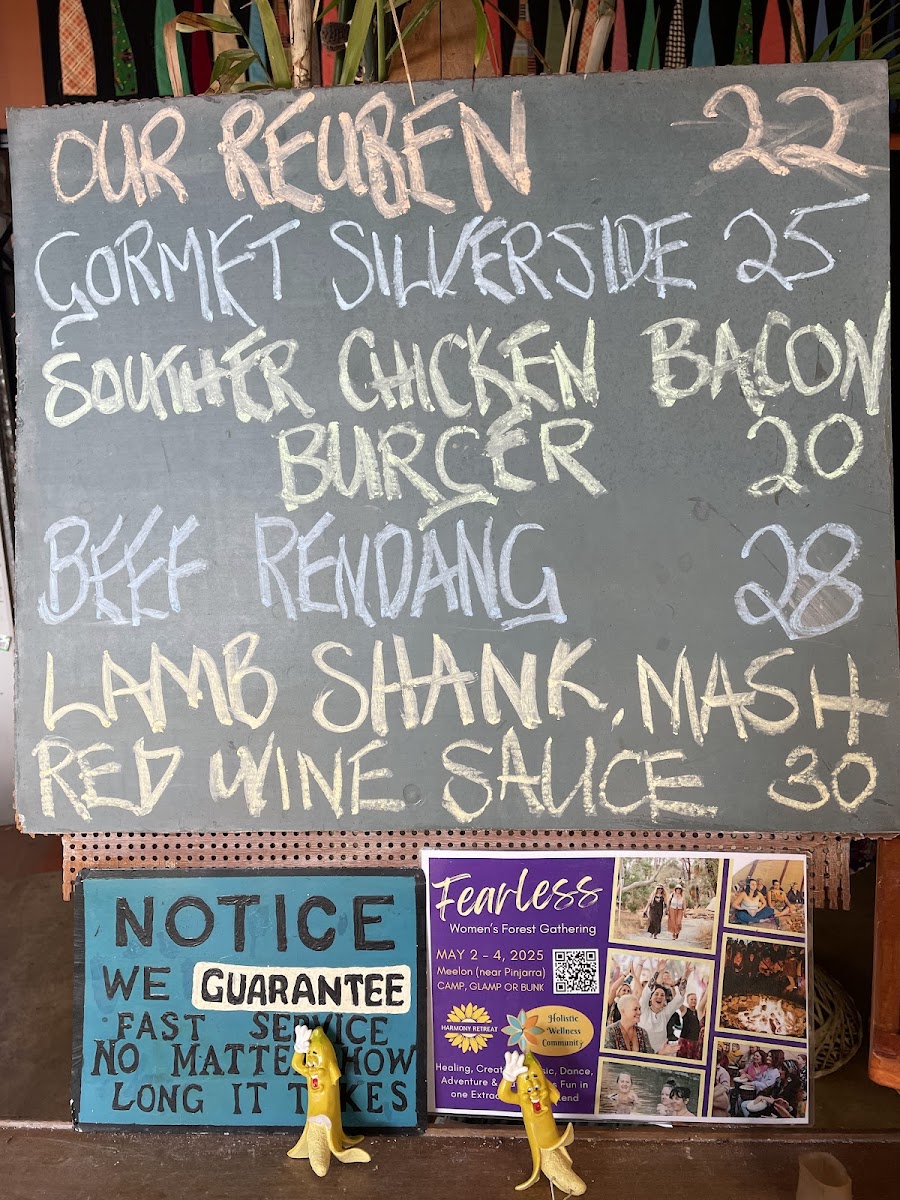 OUR REUBEN 22
GORMET SILVERSIDE 25
SOUTHER CHICKEN BACON
BURGER 20
BEEF RENDANG 28
LAMB SHANK, MASH
RED WINE SAUCE 30
NOTICE
WE GUARANTEE
FAST SERVICE
NO MATTE HOW
LONG IT T KES
Fearless
Women's Forest Gathering
MAY 2 - 4, 2025
Meelon (near Pinjarra)
CAMP, GLAMP OR BUNK
HARMONY RETREAT
Holistic
Wellness
Community
Healing, Creat ic, Dance,
Adventure & s Fun in
one Extrac end